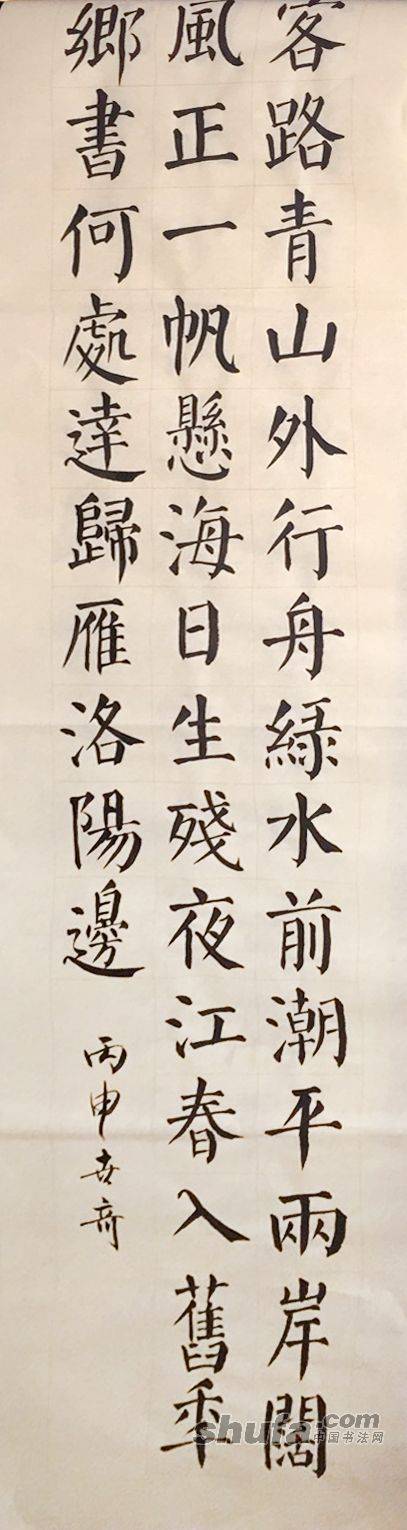 客路青山外行舟綠水前潮平兩岸闊
風正一帆懸海日生殘夜江春入舊年
鄉書何處達歸雁洛陽邊
丙申
shufa.com
中国书法网